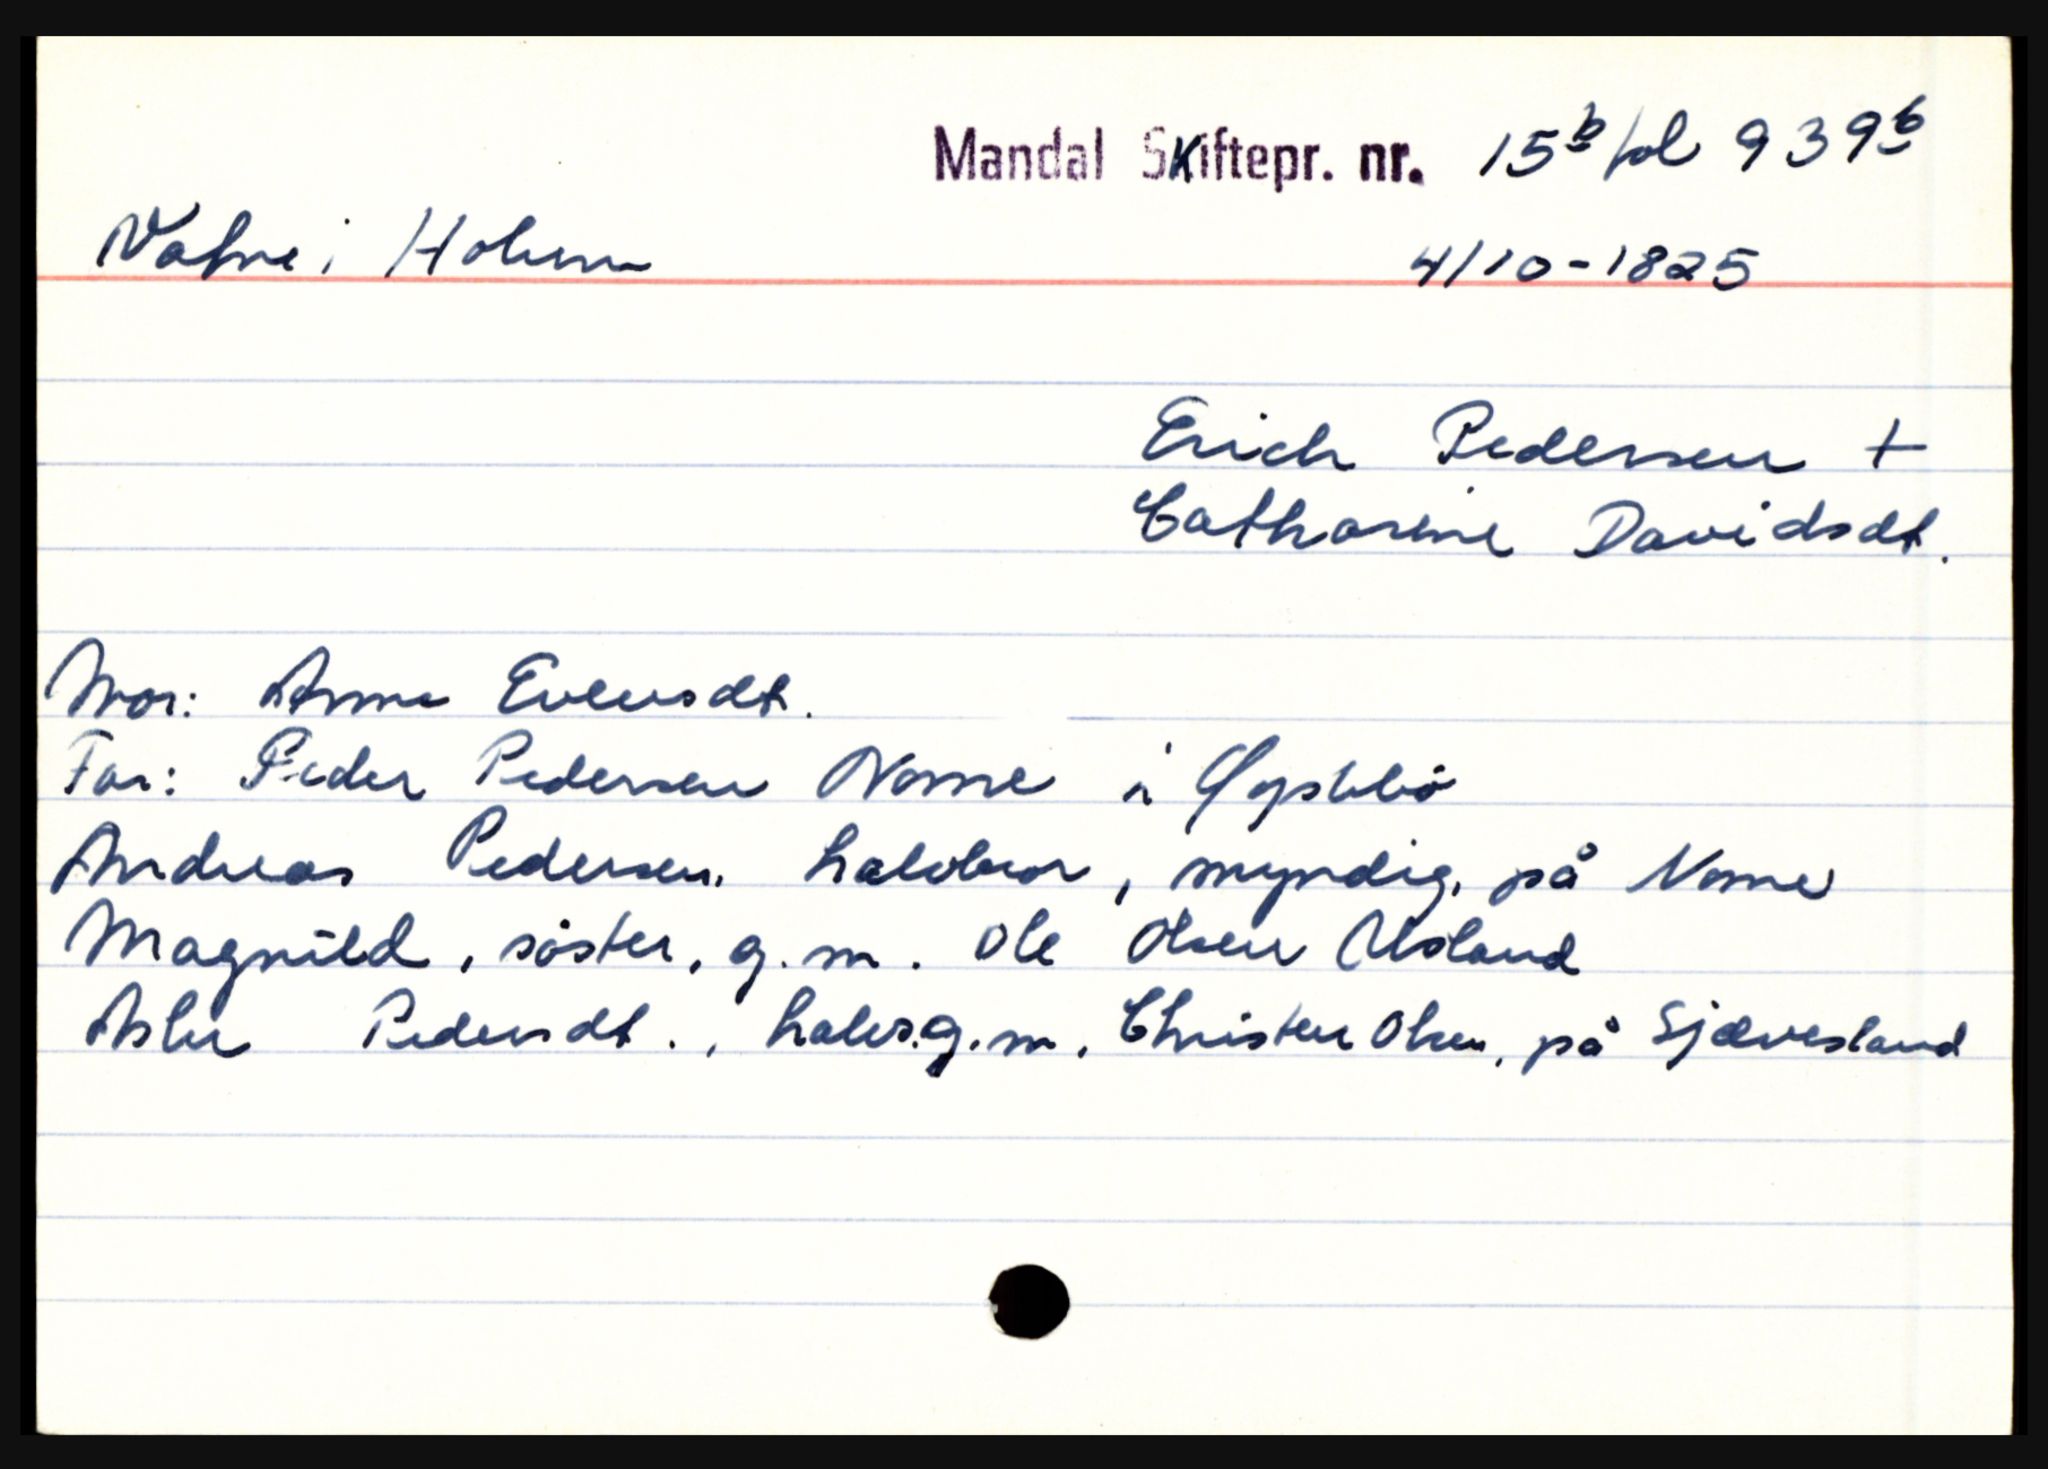 Mandal Skiftepr. nr. 15b fol 939b
Vatne i Holum 4/10-1825
Erich Pedersen +
Catharine Davidsdt.
Mor: Anne Evensdt.
Far: Peder Pedersen Nome i Øyslebö
Andreas Pedersen, halvbror, myndig, på Nome
Magnild, söster, g.m. Ole Olsen Usland
Aslu Pedersdt., halvs. g.m. Christen Olsen, på Sjævesland